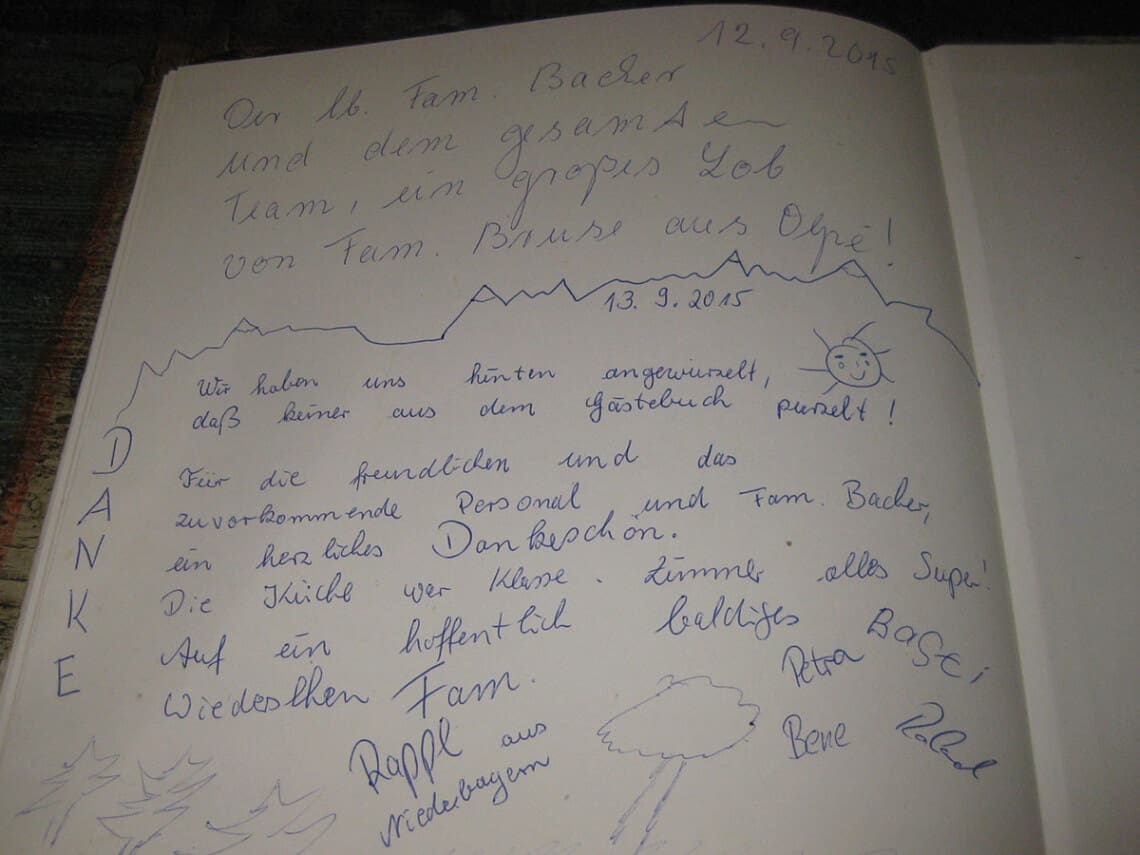 12.9.2015
Der lb. Fam. Bacher
und dem gesamten
Team, ein großes Lob
von Fam. Bruse aus Olpe!
13.9.2015
Wir haben uns hinten angewurzelt,
daß keiner aus dem Gästebuch purzelt!
DANKE
Für die freundlichen und das
zuvorkommende Personal und Fam. Bacher,
ein herzliches Dankeschön.
Die Küche war Klasse. Zimmer alles Super!
Auf ein hoffentlich baldiges
Wiedesehen Fam.
Rappl aus
Niederbayern
Basti
Petra
Bene Roland